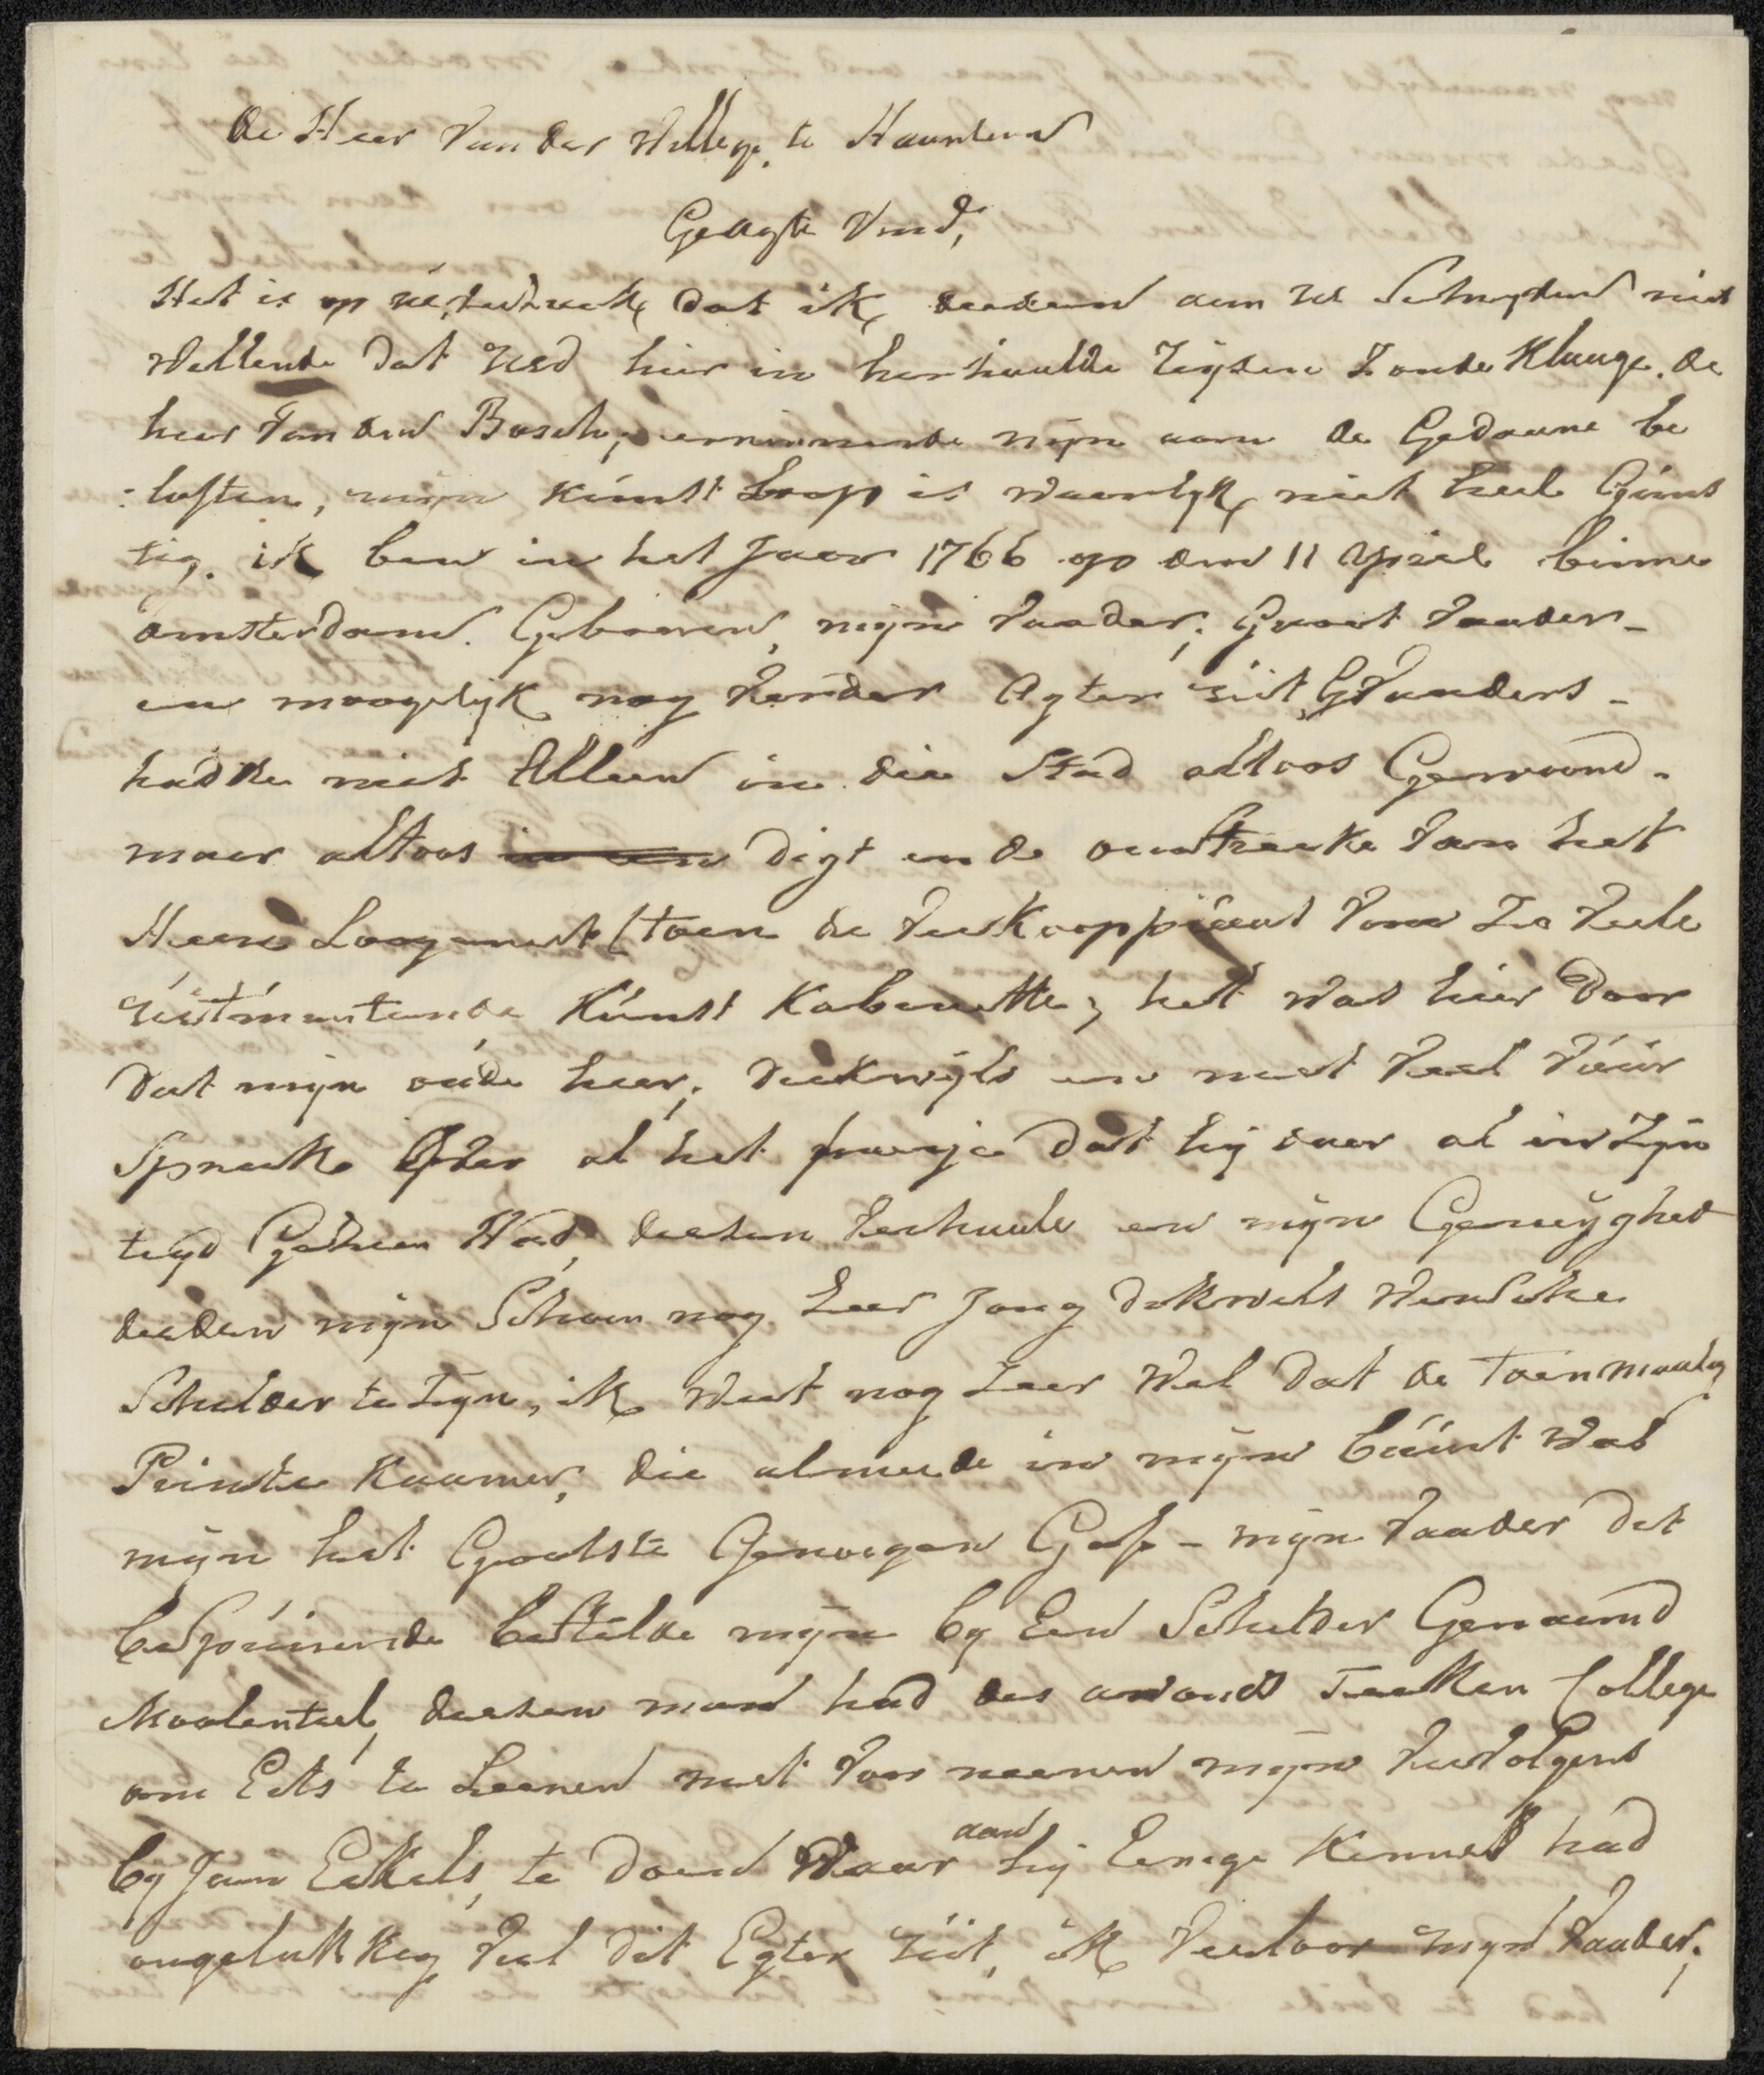 de Heer Van der Willige, te Haarlem
Geagte Vrind,
Het is op uw, dat ik deesen aan UE Schryven niet
Willende dat UEd hier in herhaalde Tyden Zoude Klaage. de
heer Van den Bosch, errinnerde mijn aan de Gedaane be
:loften, mijn Kúnst Loop is waarlyk niet heel Gúns
tig. ik ben in het Jaar 1766 op den 11 April binne
amsterdam. Gebooren, mijn Vaader, Groot Vaader_
en moogelyk nog Verder Agter úit GVaaders_
hadde niet Alleen in die Stad altoos Gewoond_
maar altoos in een digt in de omstreeke van het
Heere Loogement (toen de Verkoopplaats van Zo Veele
úitmuntende Kúnst Kabinette; het was hier Door
Dat mijn oúde heer, Dikwijls en met Veel Vúúr
Spraake Over al het fraeije Dat hij daar al in Zijn
tyd Gesien Had, deesen Verhaale en mijn Geneijghed
deeden mijn Schoon nog Zeer Jong dikwils Wensche
Schilder te Zyn, ik Weet nog Zeer Wel Dat de Toenmaalig
Printe Kaamer, die almeede in mijn búúrt Was
mijn het Grootste Genoegen Gaf _ mijn Vaader Dit
bespúúrende bestelde mijn by Een Schilder Genaamd
Moolenteel, deesen man had des avonds Teeken College
om Eits te Leeren met Voor neemen mijn Vervolgens
by Jan Ekels, te Doen Waar aan hij Eenige Kennis had
ongelukkig Viel Dit Egter úit, ik Verloor mijn Vaader,